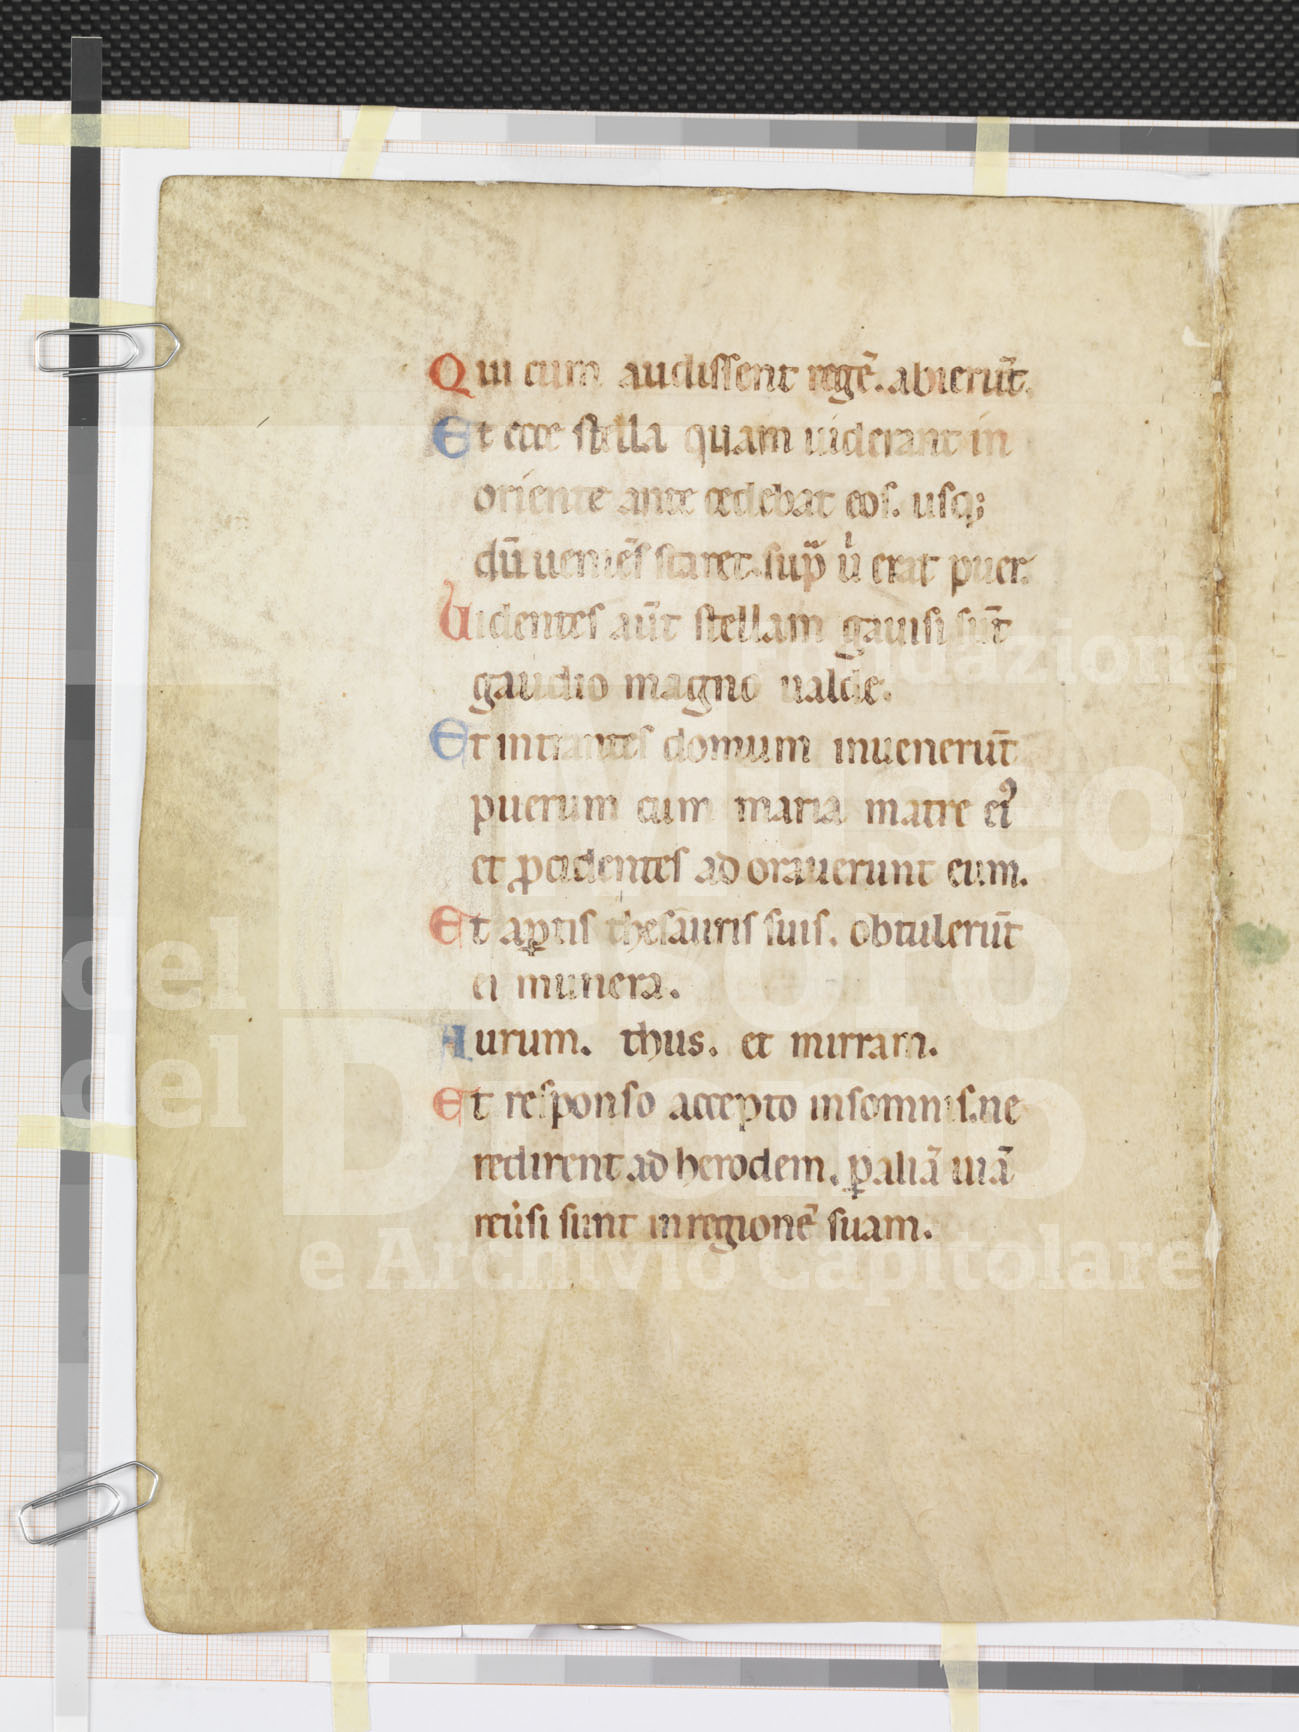 Qui cum audissent regē. abierūt.
Et ecce stella quam uiderant in
oriente ante cedebat eos. usq;
dū ueniēs staret. sup̄ u̍ erat puer.
Uidentes aūt stellam gauisi sūt
gaudio magno ualde.
Et intrantes domum inuenerūt
puerum cum maria matre eiꝰ
et ꝓcidentes ad orauerunt eum.
Et aꝑtis thesauris suis. obtulerūt
ei munera.
Aurum. thus. et mirram.
Et responso accepto insomnis. ne
redirent ad herodem. ꝑ aliā uiā
reu̍si sunt in regionē suam.
Fondazione
Museo
del Tesoro
del Duomo
e Archivio Capitolare